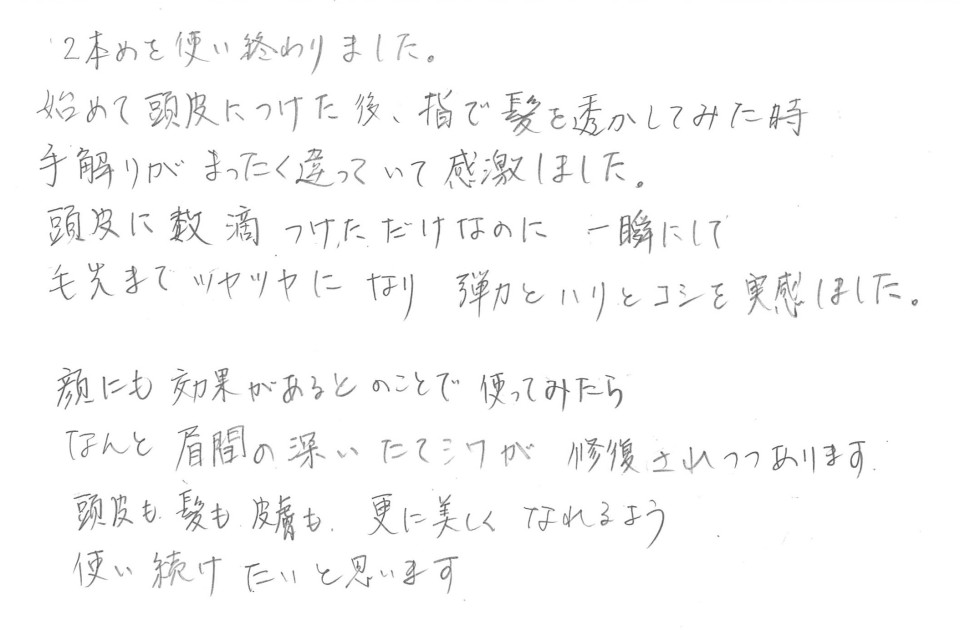 2本めを使い終わりました。
始めて頭皮につけた後、指で髪を透かしてみた時
手解りがまったく違っていて感激しました。
頭皮に数滴つけただけなのに一瞬にして
毛先までツヤツヤになり弾力とハリとコシを実感しました。
顔にも効果があるとのことで使ってみたら
なんと眉間の深いたてシワが修復されつつあります.
頭皮も髪も皮膚も.更に美しくなれるよう
使い続けたいと思います